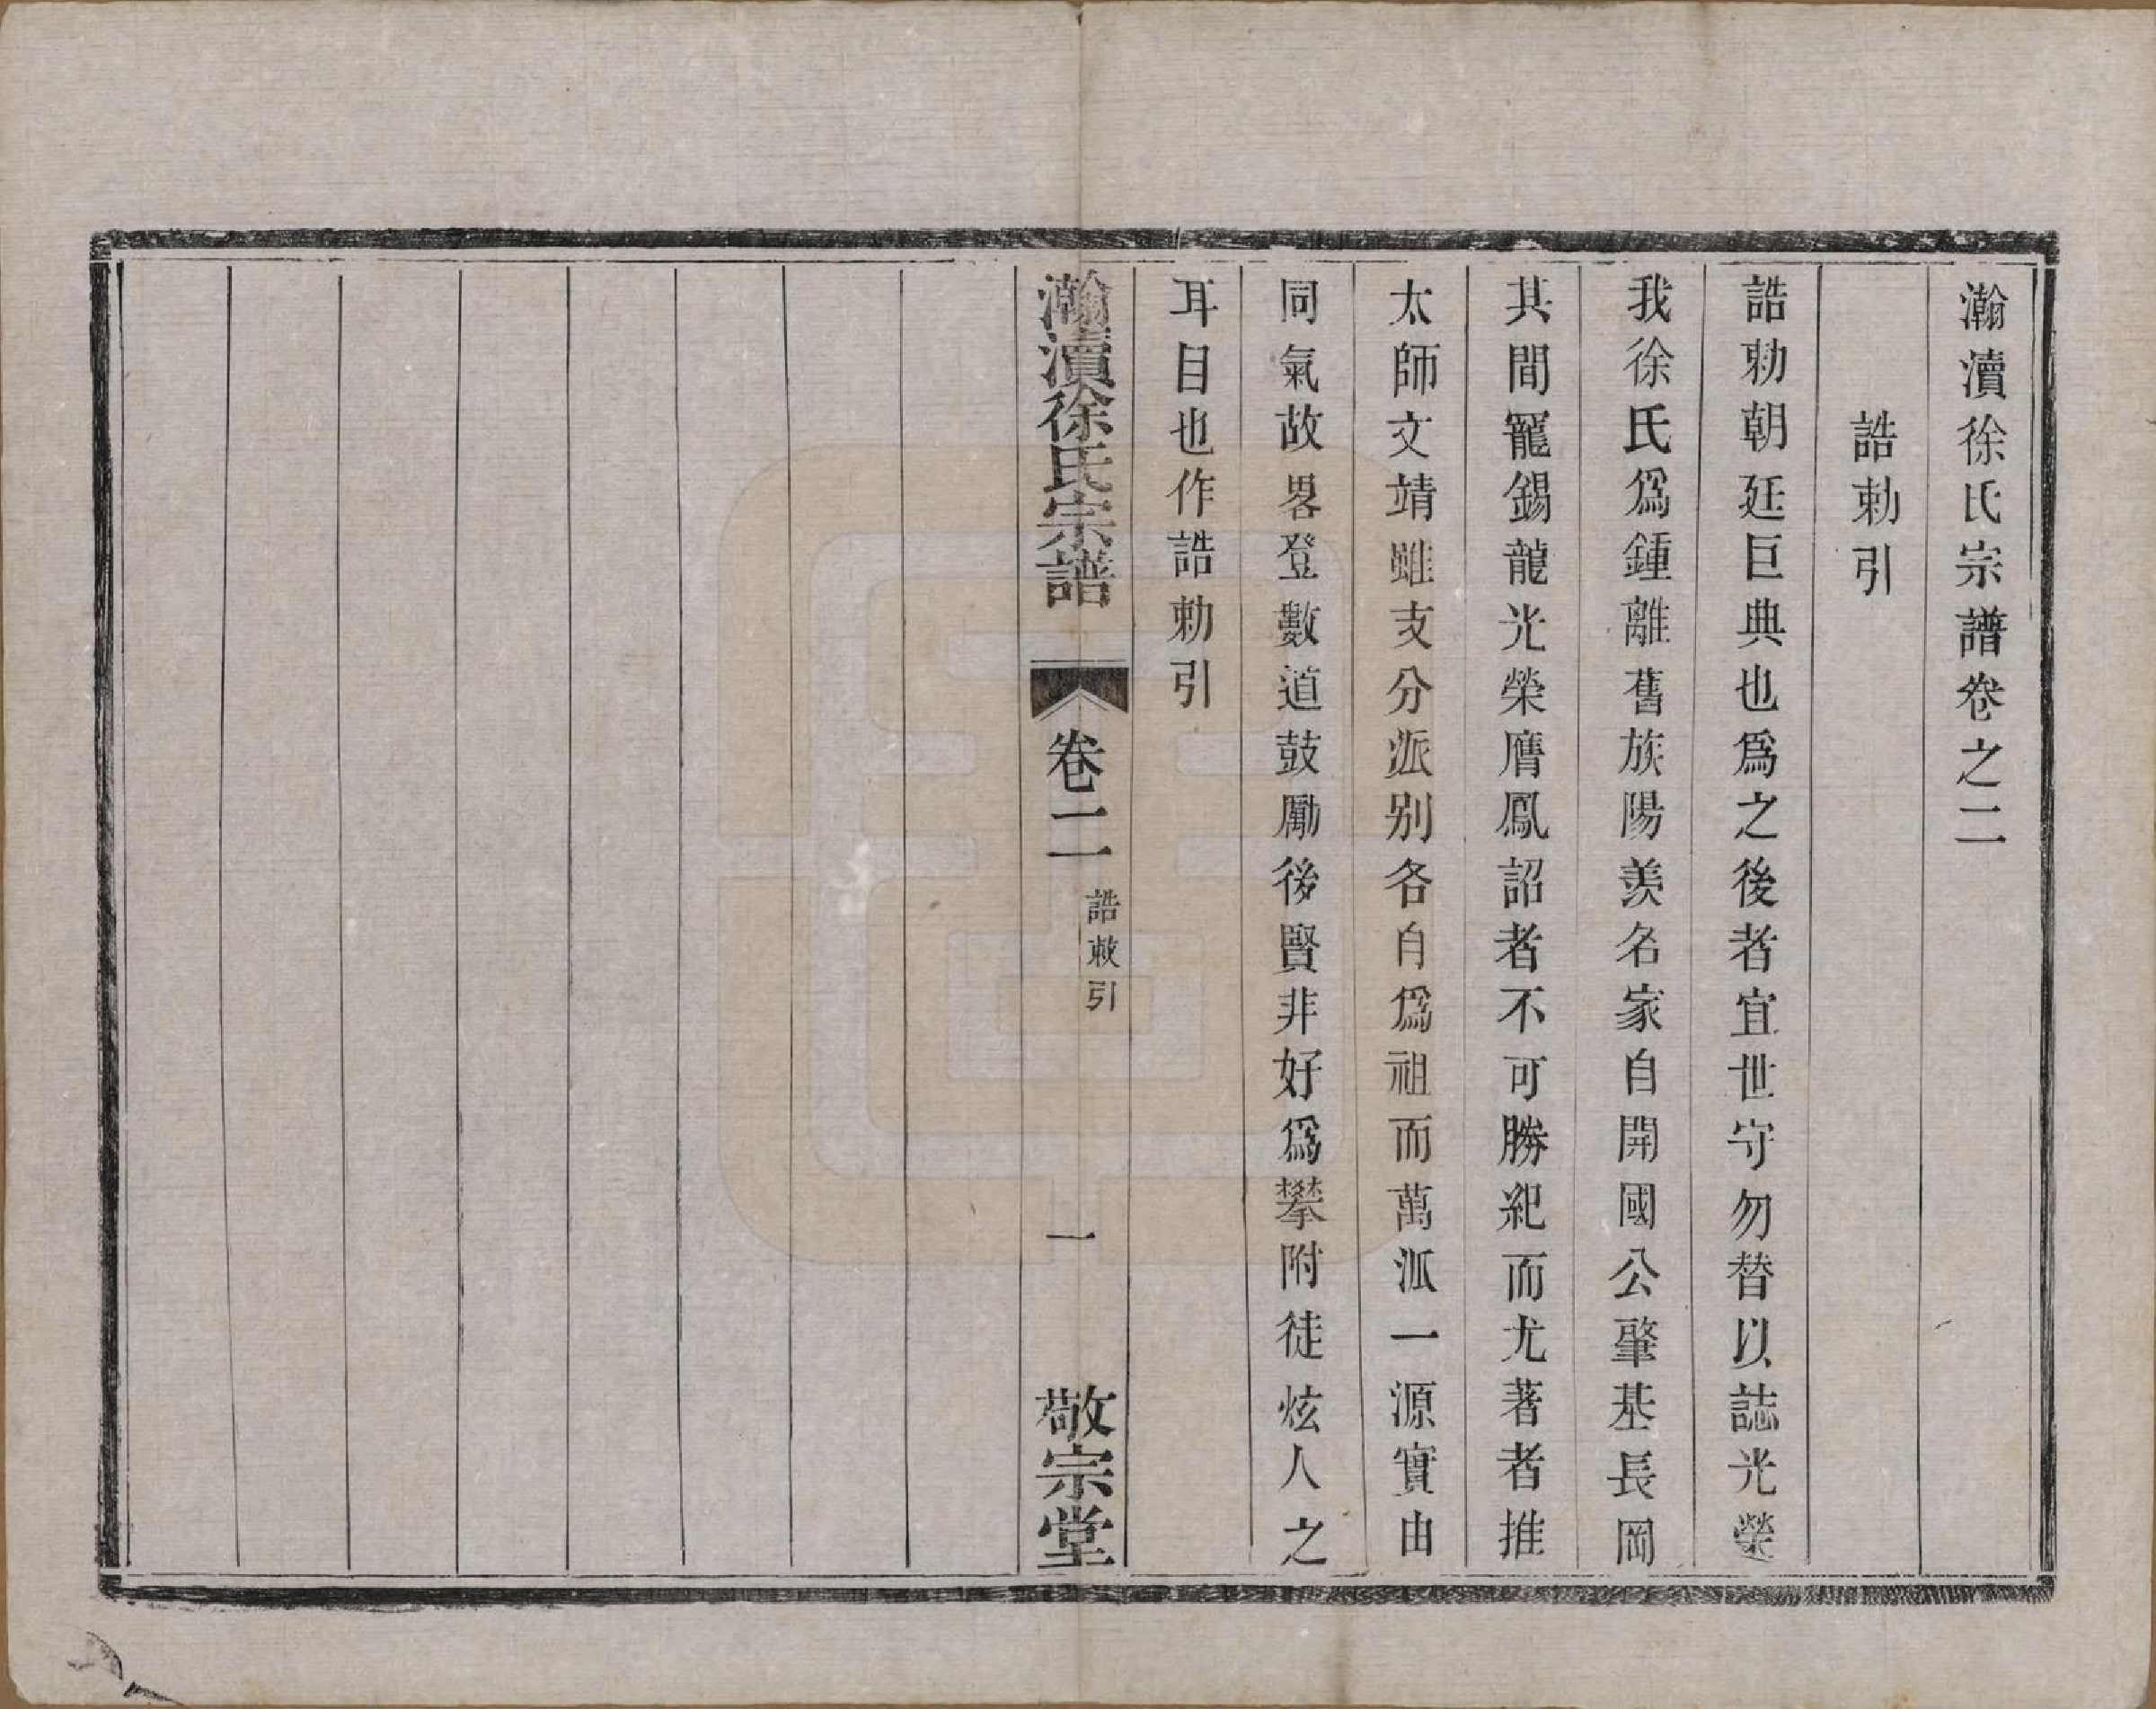 瀚瀆徐氏宗譜卷之二
誥勅引
誥勅朝廷巨典也爲之後者宜世守勿替以誌光榮
我徐氏爲鍾離舊族陽羨名家自開國公肇基長岡
其間寵錫龍光榮膺鳳詔者不可勝紀而尤著者推
太師文靖雖支分派別各自爲祖而萬派一源實由
同氣故畧登數道鼓勵後賢非好爲攀附徒炫人之
耳目也作誥勅引
瀚瀆徐氏宗譜
卷二
誥敕引
一
敬宗堂